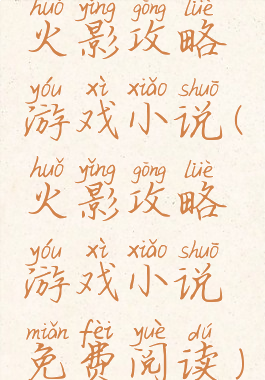 huǒ yǐng gōng lüè
火影攻略
yóu xì xiǎo shuō
游戏小说(
huǒ yǐng gōng lüè
火影攻略
yóu xì xiǎo shuō
游戏小说
miǎn fèi yuè dú
免费阅读)